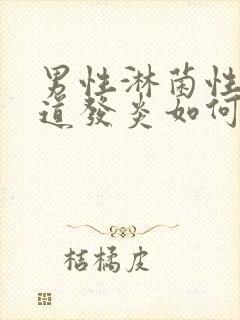 男性淋菌性
道發炎如何
桔橘皮